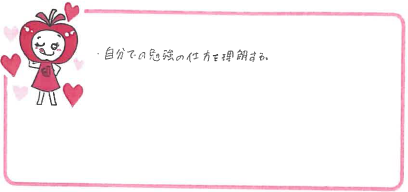 ・自分での勉強の仕方を理解する。